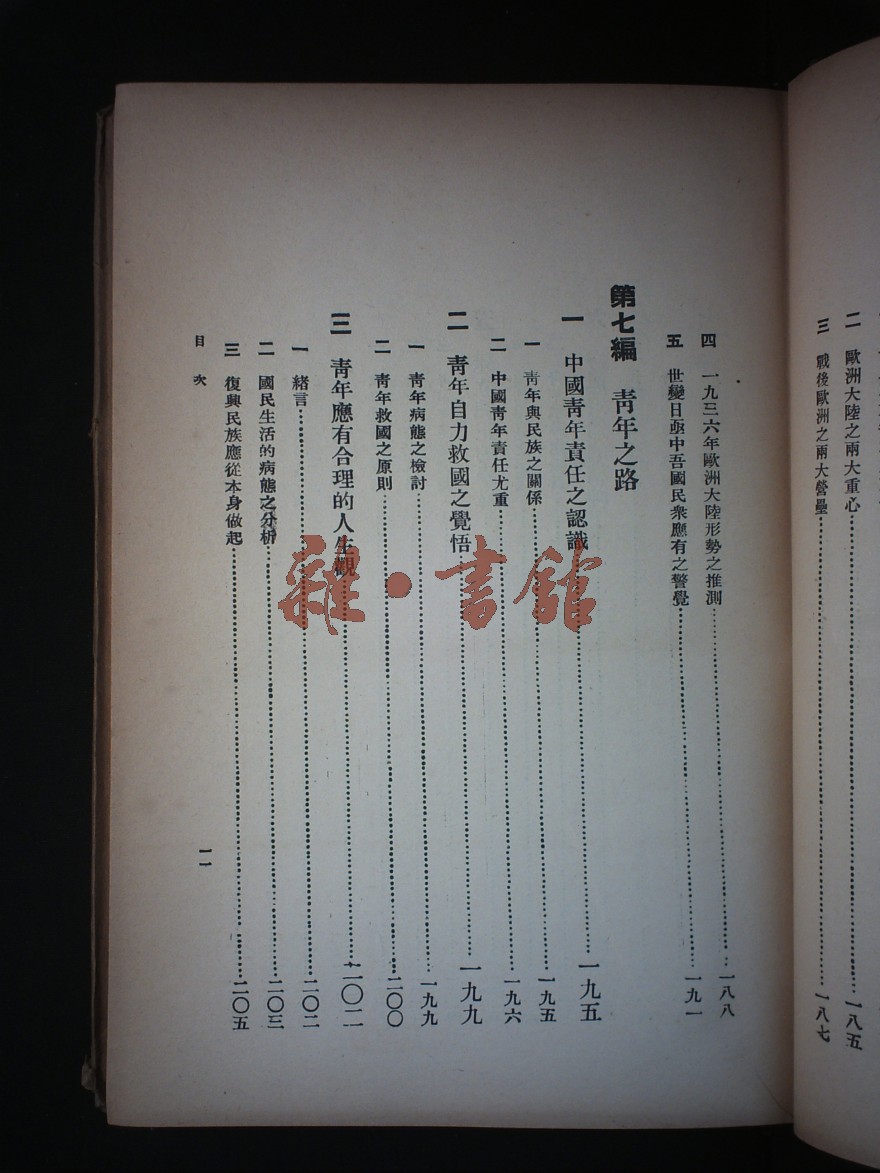 二 歐洲大陸之兩大重心 一八五
三 戰後歐洲之兩大營壘 一八七
四 一九三六年歐洲大陸形勢之推測 一八八
五 世變日亟中吾國民衆應有之警覺 一九一
第七編 靑年之路
一 中國靑年責任之認識 一九五
一 靑年與民族之關係 一九五
二 中國靑年責任尤重 一九六
二 靑年自力救國之覺悟 一九九
一 靑年病態之檢討 一九九
二 靑年救國之原則 二〇〇
三 靑年應有合理的人生觀 二〇二
一 緒言 二〇二
二 國民生活的病態之分析 二〇三
三 復興民族應從本身做起 二〇五
目次 一一
雜·書館